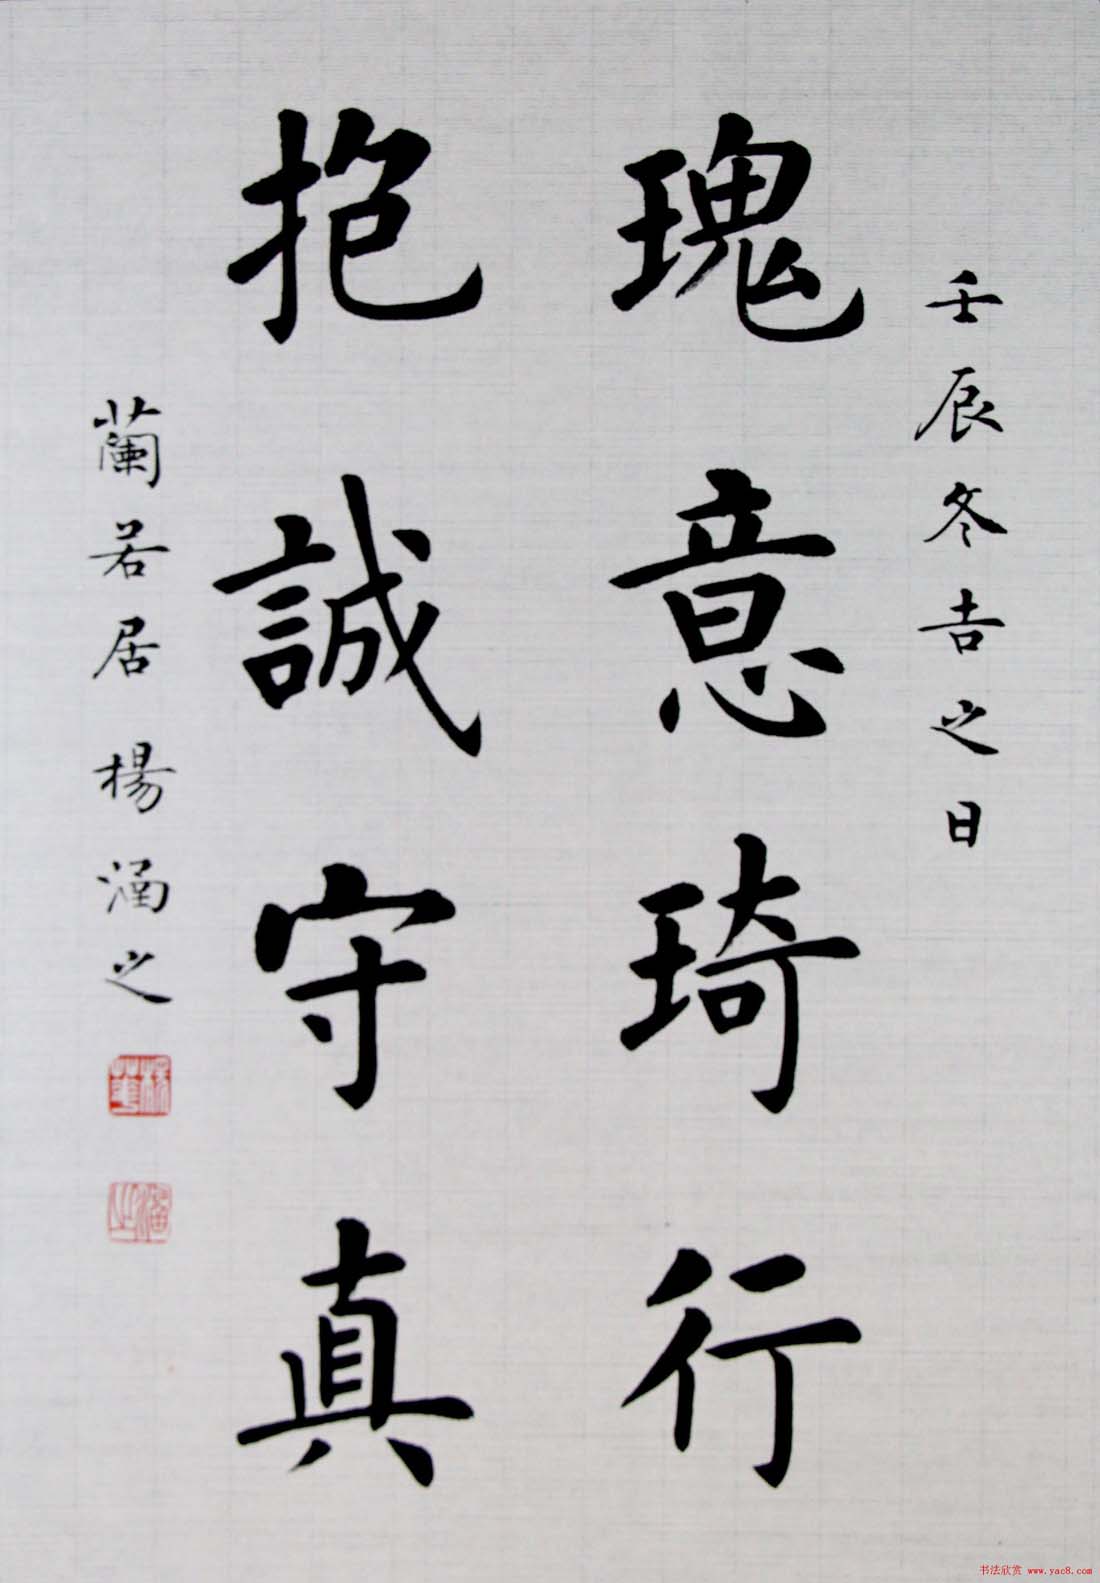 壬辰冬吉之日
瑰意琦行
抱誠守真
蘭若居楊涵之
书法欣赏 www.yac8.com